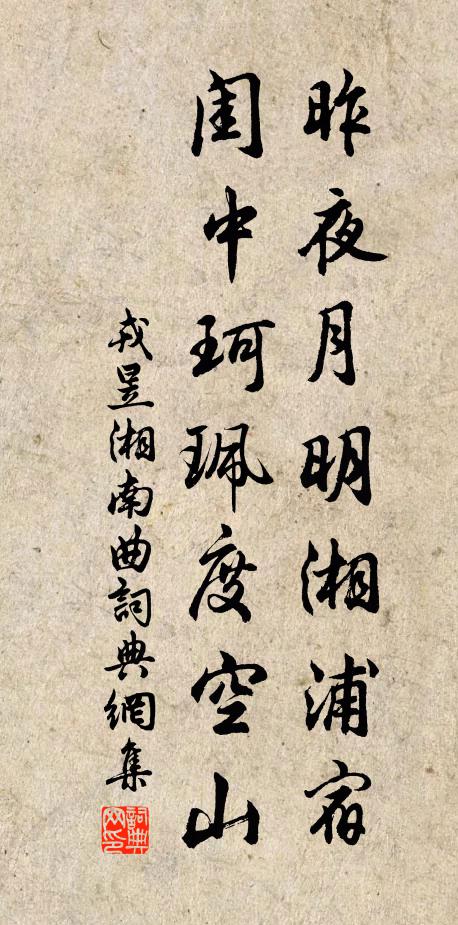 昨夜月明湘浦宿
閨中珂珮度空山
戎昱湘南曲詞典網集
詞典网印